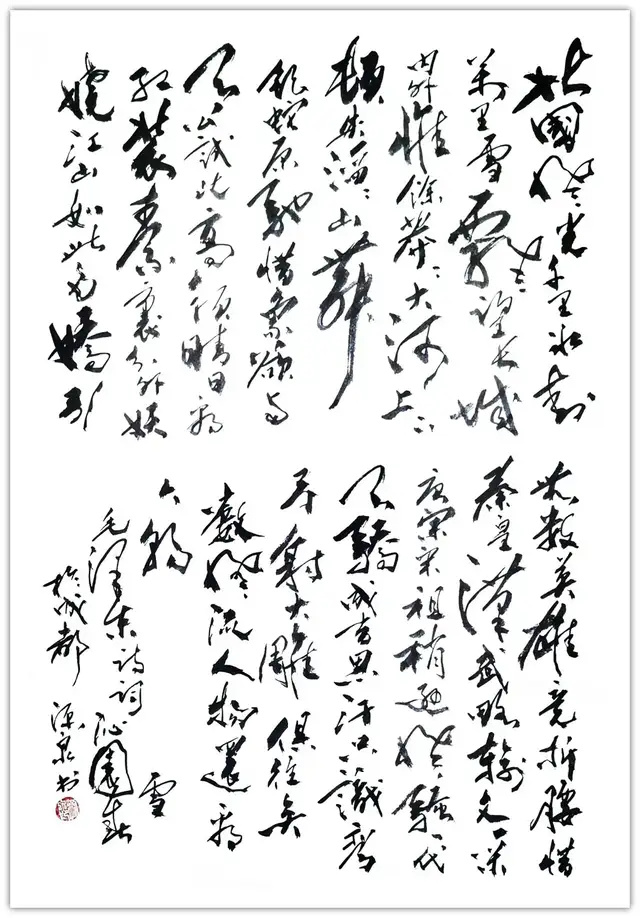 北國風光千里冰封
萬里雪飄望长城
内外惟餘莽々大河上下
頓失滔々山舞
銀蛇原馳蜡象欲与
天公試比高須晴日看
红裝素裹分外妖
娆江山如此多嬌引
无数英雄竞折腰惜
秦皇漢武略輸文采
唐宗宋祖稍逊風騷一代
天驕成吉思汗只識弯
弓射大雕俱往矣
數風流人物還看
今朝
毛澤东詩詞沁園春
雪
於成都 源泉书